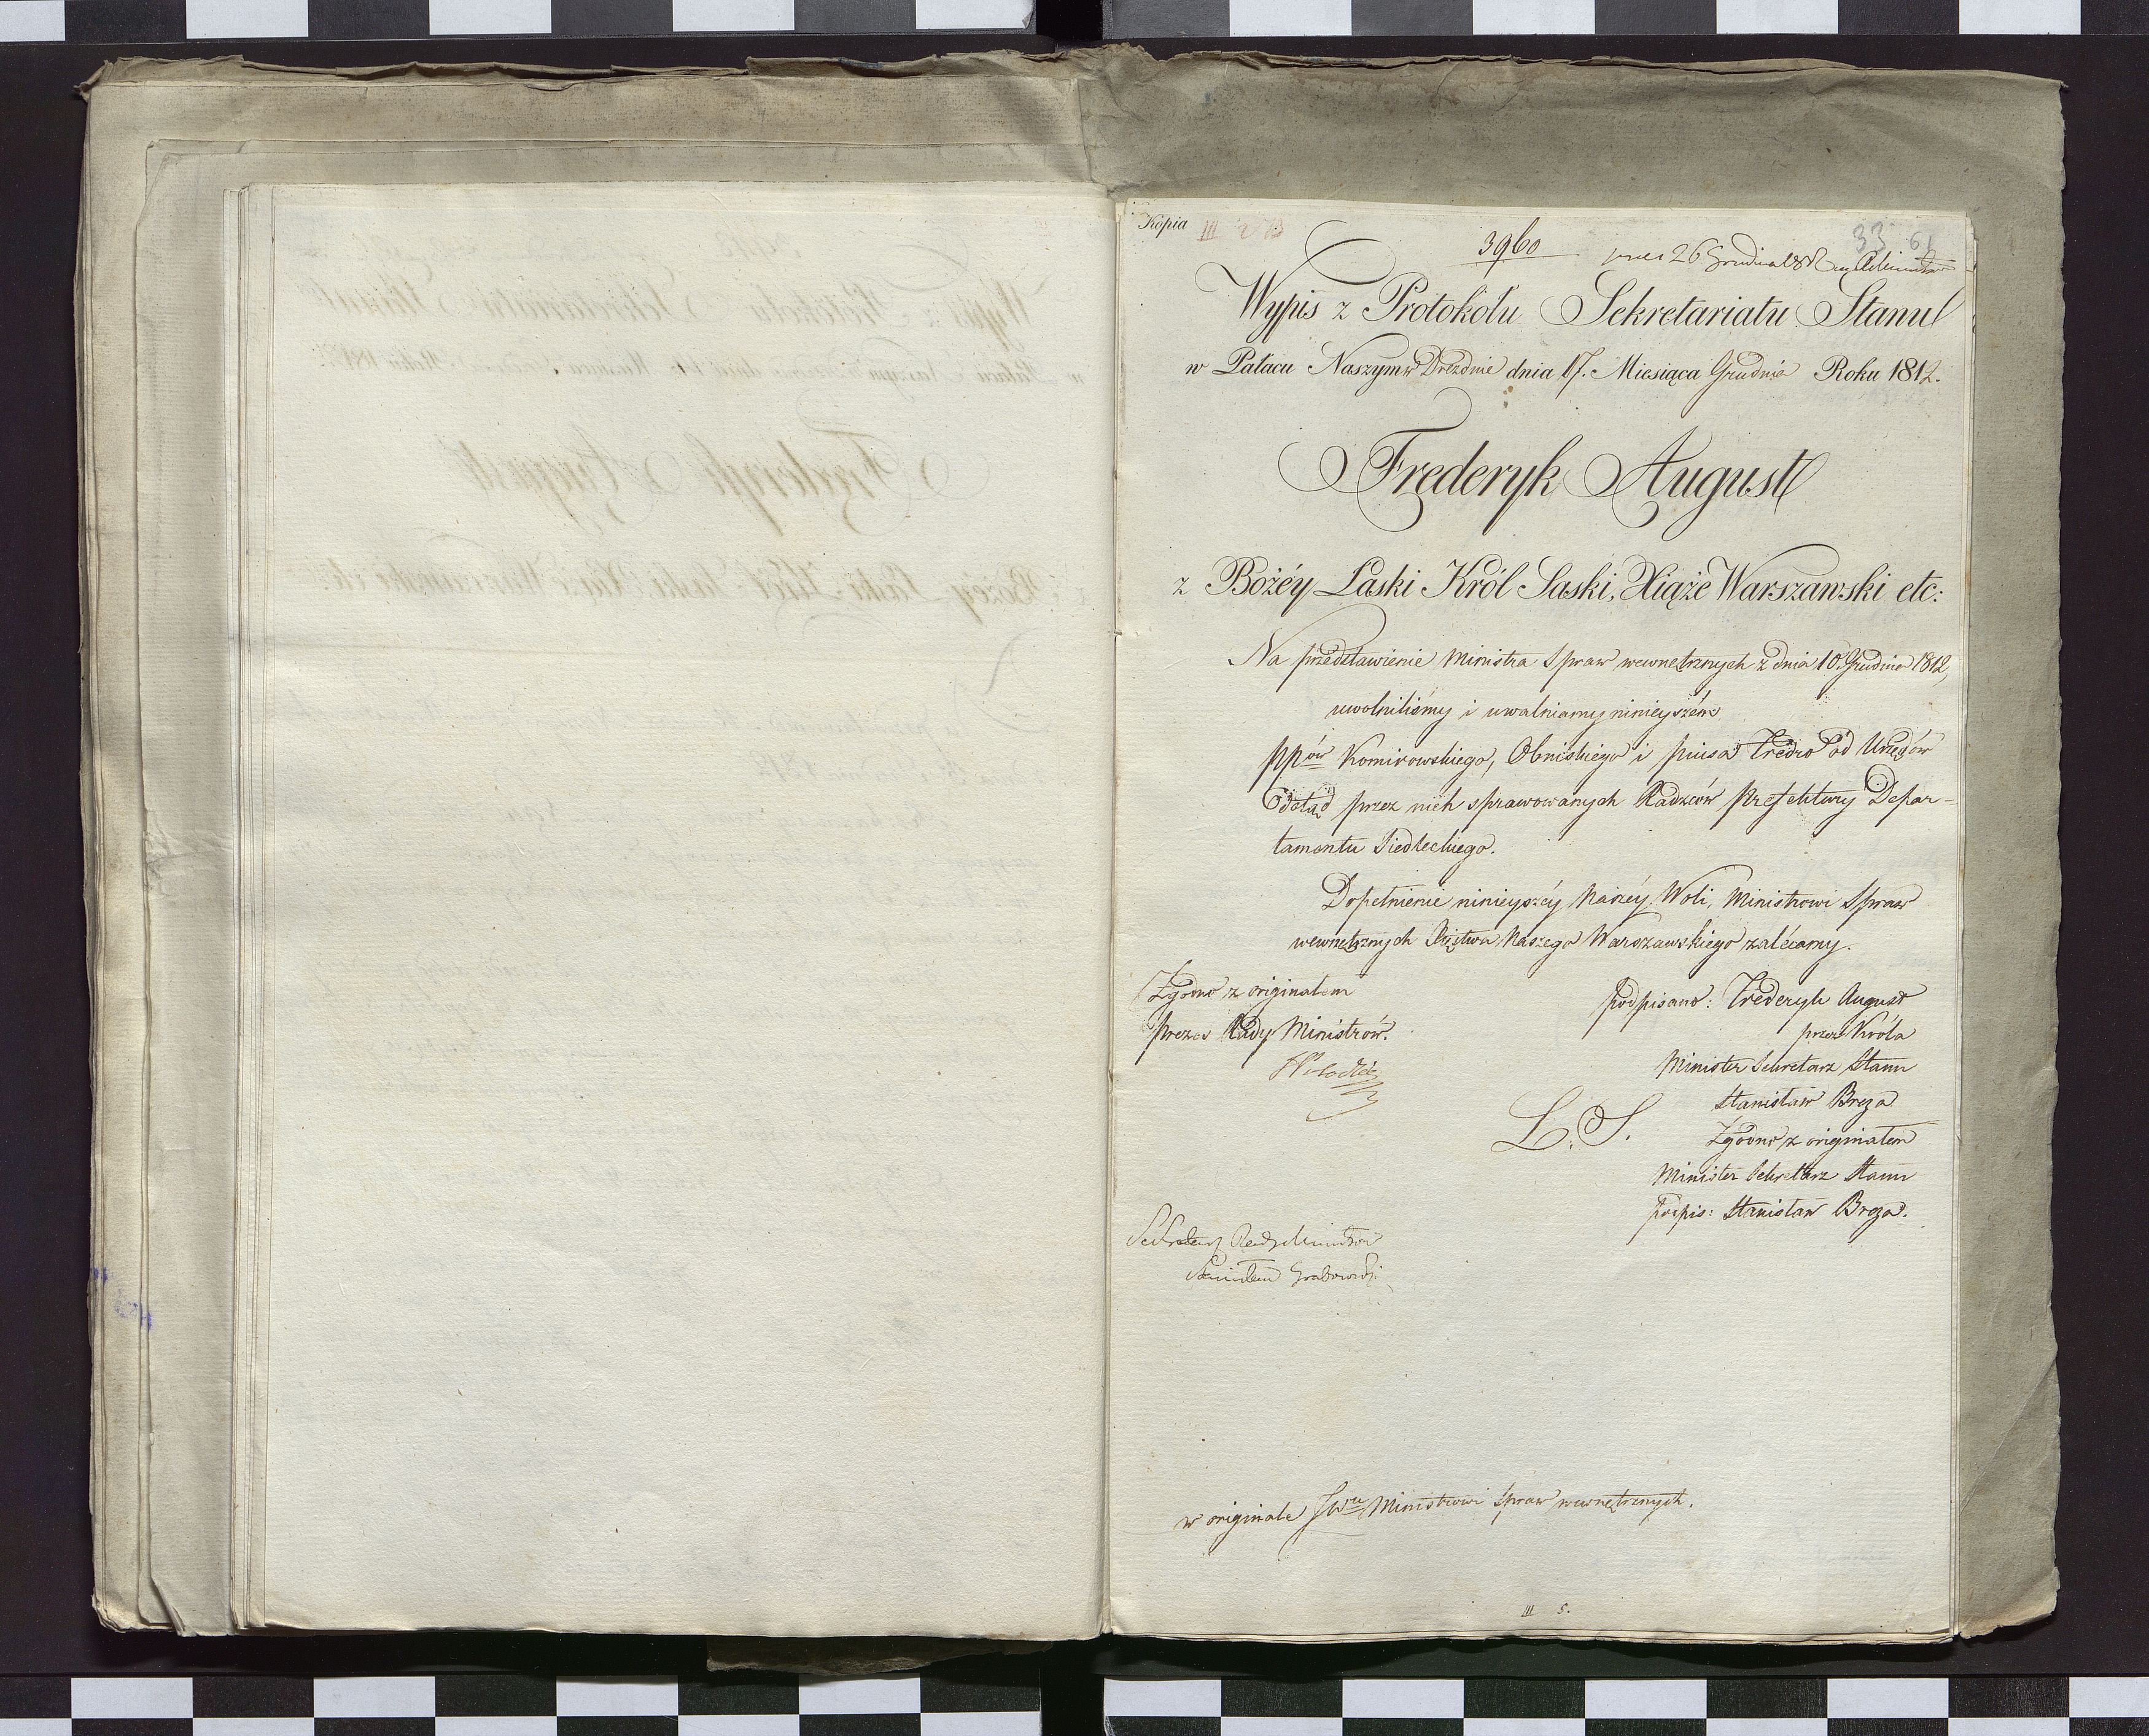 Kopia
III
3960
33 61
26 Grudnia 1812
Wypis z Protokołu Sekretariatu Stanu
w Pałacu Naszym w Drezdnie dnia 17. Miesiąca Grudnia Roku 1812.
Fręderyk August
z Bożéy Łaski Król Saski, Xiąże Warszawski etc:
Na przedstawienie Ministra Spraw wewnętrznych z dnia 10. Grudnia 1812,
uwolniliśmy i uwalniamy ninieyszém
PPów Komirowskiego, Obniskiego i Piusa Fredro od Urzędów
Odtąd przez nich sprawowanych Radzców Prefektury Depar-
tamentu Siedleckiego.
Dopełnienie ninieyszéy Naszéy Woli, Ministrowi Spraw
wewnętrznych Xięstwa Naszego Warszawskiego zalécamy.
Zgodno z originałem
Prezes Rady Ministrów.
podpisano: Fryderyk August
przez Króla
Minister Sekretarz Stanu
Stanisław Breza
L. S.
Zgodno z originałem
Minister Sekretarz Stanu
podpis: Stanisław Breza.
Sekretarz Rady Ministrów
Stanisław Grabowski
w originale JWu Ministrowi Spraw wewnętrznych.
III 5.
Wypis z Protokołu Sekretariatu Stanu
Fręderyk August
z Bożéy Łaski Król Saski, Xiąże Warszawski etc: